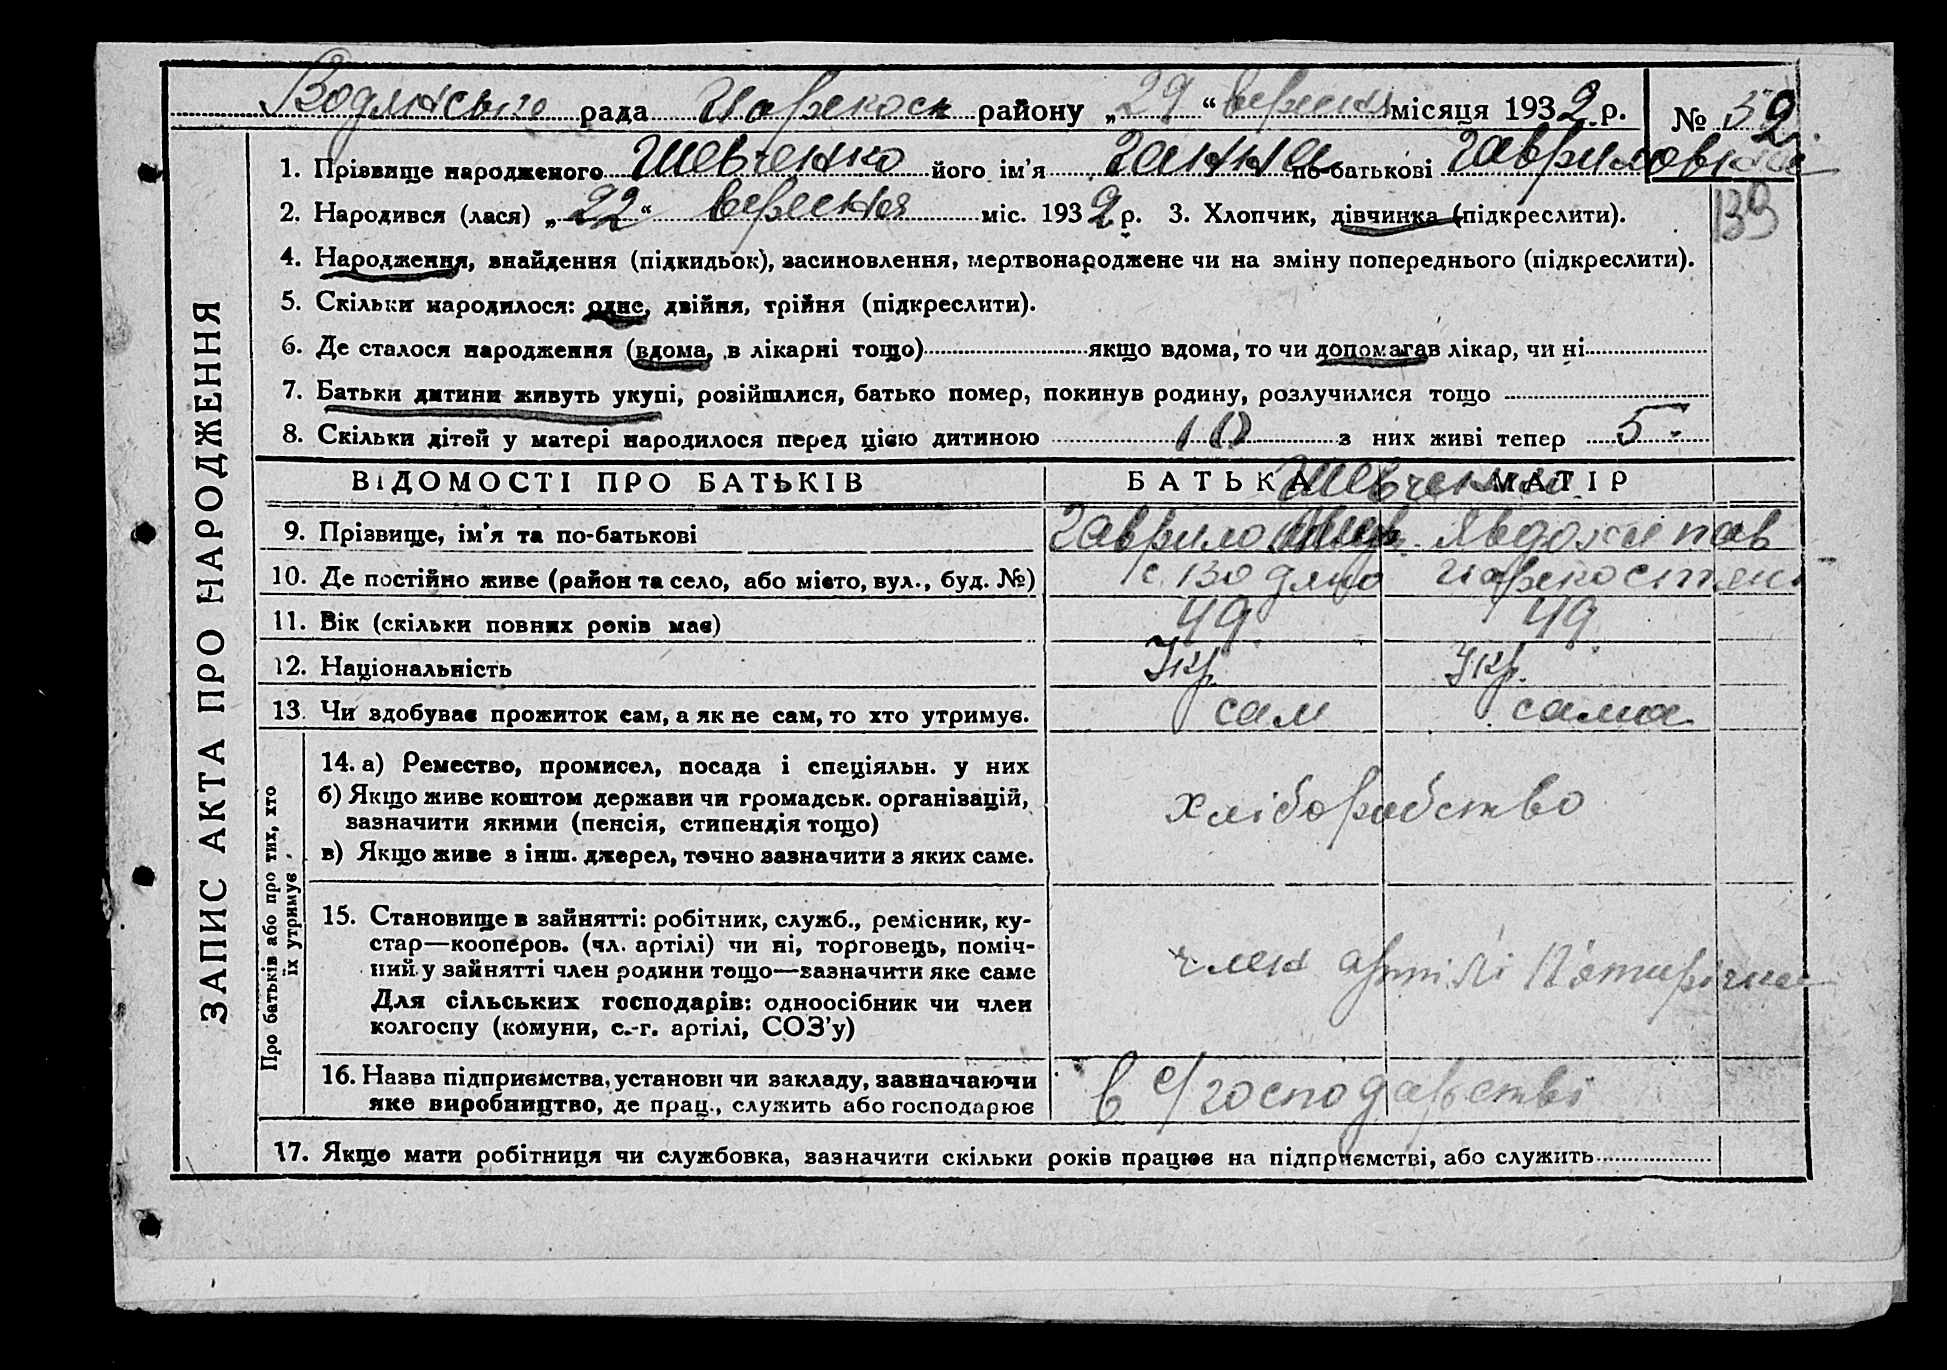 Водянська рада район району „29“ вересня місяця 1932 р. № 52
1. Прізвище народженого Шевченко його ім'я Ганна по-батькові Гавриловна
2. Народився (лася) „22“ вересня міс. 1932 р. 3. Хлопчик, дівчинка (підкреслити).
139
4. Народження, внайдення (підкидьок), засиновлення, мертвонароджене чи на зміну попереднього (підкреслити).
5. Скільки народилося: одне, двійня, трійня (підкреслити).
6. Де сталося народження (вдома, в лікарні тощо) якщо вдома, то чи допомагав лікар, чи ні
7. Батьки дитини живуть укупі, розійшлися, батько помер, покинув родину, розлучилися тощо
8. Скільки дітей у матері народилося перед цією дитиною 10 з них живі тепер 5.
ВІДОМОСТІ ПРО БАТЬКІВ БАТЬКА МАТІР
Шевченко
9. Прізвище, ім'я та по-батькові Гаврило Явдоха Пав
10. Де постійно живе (район та село, або місто, вул., буд. №) с. Водяно
11. Вік (скільки повних років має) 49 49
12. Національність Укр. Укр.
13. Чи здобуває прожиток сам, а як не сам, то хто утримує. сам сама
14. а) Ремество, промисел, посада і спеціяльн. у них
б) Якщо живе коштом держави чи громадськ. організацій,
зазначити якими (пенсія, стипендія тощо)
хліборобство
в) Якщо живе з інш. джерел, точно зазначити з яких саме.
15. Становище в зайнятті: робітник, служб., ремісник, ку-
стар—кооперов. (чл. артілі) чи ні, торговець, поміч-
ний у зайнятті член родини тощо—зазначити яке саме
член артілі Пятирічка
Для сільських господарів: одноосібник чи член
колгоспу (комуни, с.-г. артілі, СОЗ'у)
16. Назва підприємства, установи чи закладу, зазначаючи
яке виробництво, де прац., служить або господарює
в с/господарстві
17. Якщо мати робітниця чи службовка, зазначити скільки років працює на підприємстві, або служить
ЗАПИС АКТА ПРО НАРОДЖЕННЯ
Про батьків або про тих, хто
їх утримує